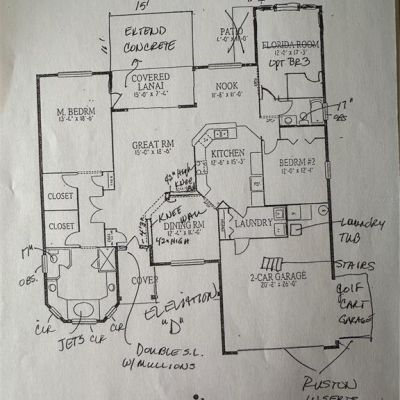 15'
11'
EXTEND
CONCRETE
PATIO
FLORIDA ROOM
12'-0" x 17'-3"
OPT BR3
COVERED
LANAI
15'-0" x 7'-6"
NOOK
11'-8" x 11'-0"
M. BEDRM
13'-4" x 18'-6"
17"
OBS.
GREAT RM
15'-0" x 18'-0"
KITCHEN
12'-6" x 15'-3"
BEDRM #2
12'-0" x 12'-4"
42" HIGH
KNEE
CLOSET
CLOSET
KNEE
WALL
42" HIGH
DINING RM
LAUNDRY
LAUNDRY
TUB
17"
OBS.
2-CAR GARAGE
STAIRS
GOLF
CART
GARAGE
COVER
ELEVATION
"D"
CLR
JETS
CLR
CLR
DOUBLE S.L.
W/ MULLIONS
RUSTON
INSERTS